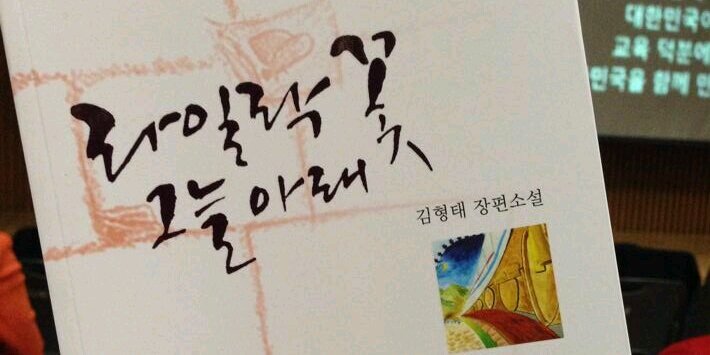 라일락 꽃
그늘 아래
김형태 장편소설
대한민국이
교육 덕분에
민국을 함께 만